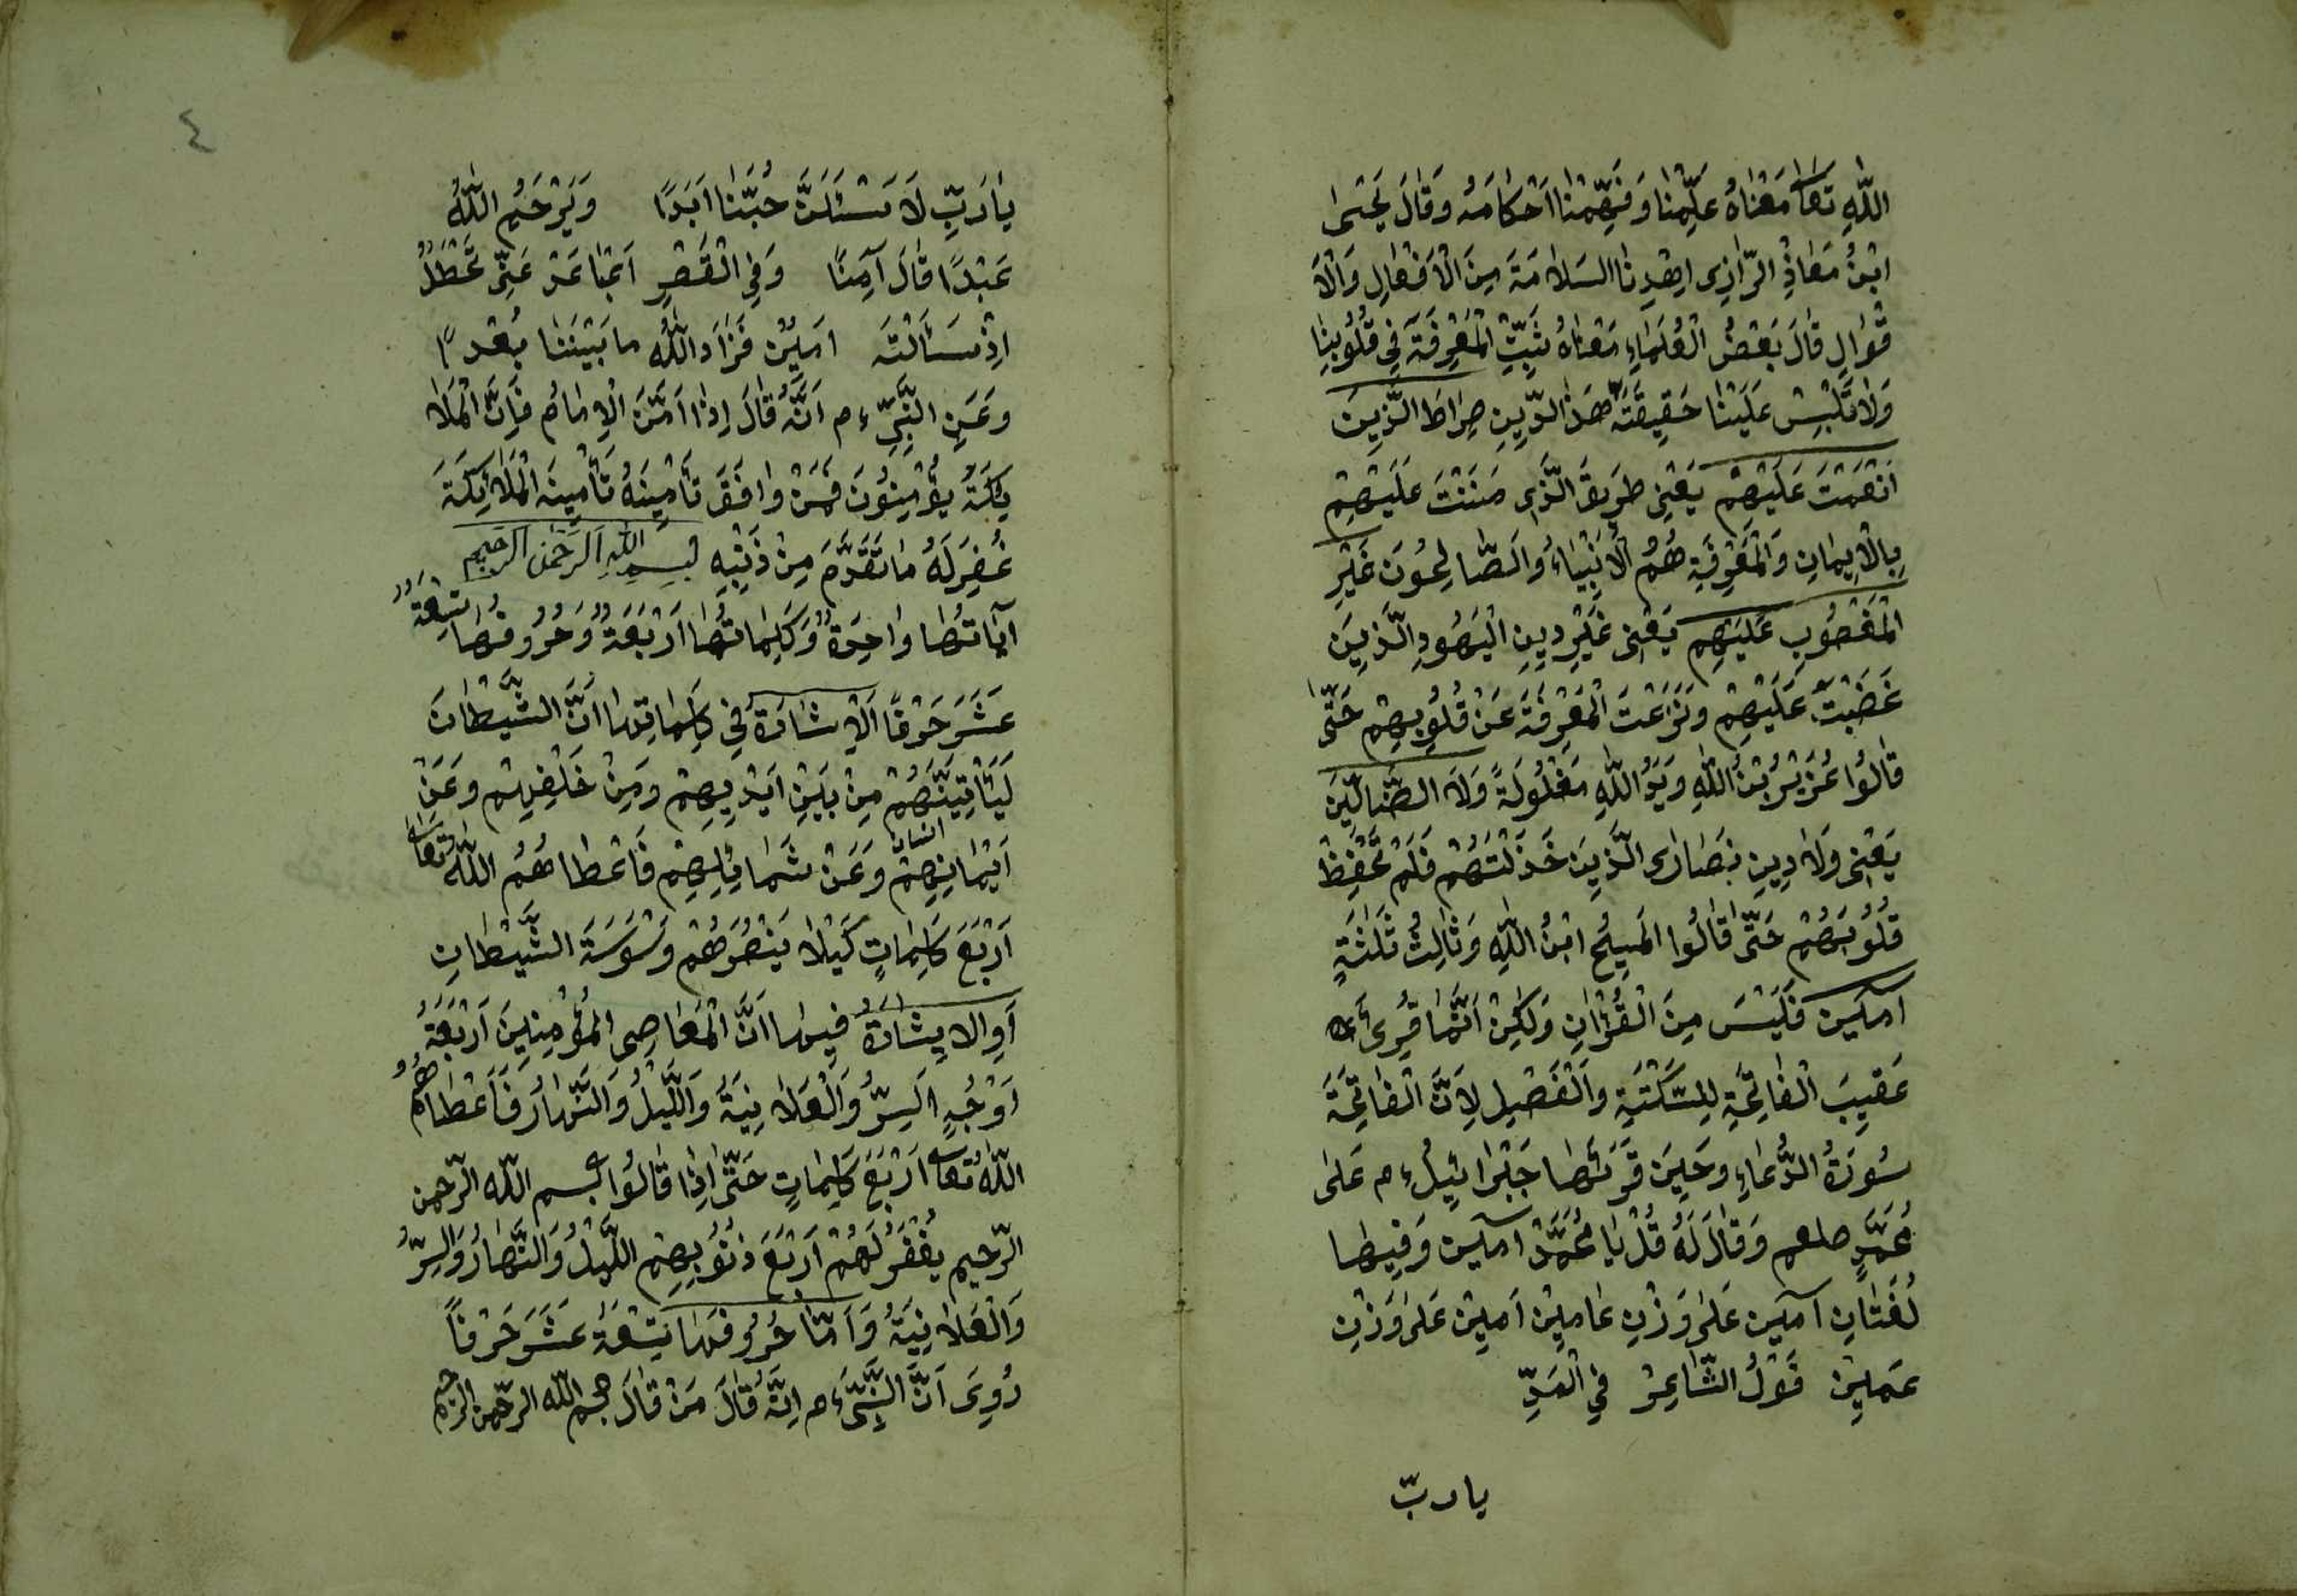 اللّٰهِ تَعَا مَعْنَاهُ عَلِّمْنَا وَفَهِّمْنَا اَحْكَامَهُ وَقَالَ يَحْيٰى
ابْنُ مَعَاذِ الرَّازِى اِهْدِنَا السَلَامَةَ مِنَ الْاَفْعَالِ وَالْاَ
قْوَالِ قَالَ بَعْضُ الْعُلَمَاءِ مَعْنَاهُ ثَبِّتِ الْمَعْرِفَةَ فِي قُلُوبِنَا
وَلَا تَلْبِسْ عَلَيْنَا حَقِيقَتَهُ هَذَ الدِّينِ صِرَاطَ الَّذِينَ
اَنْعَمْتَ عَلَيْهِمْ يَعْنِى طَرِيقَ الَّذِى مَنَنْتَ عَلَيْهِمْ
بِالْاِيمَانِ وَالْمَعْرِفَةِ هُمُ الْاَنْبِيَاءُ وَالصَّالِحُونَ غَيْرِ
الْمَغْضُوبِ عَلَيْهِمْ يَعْنِى غَيْرِ دِينِ الْيَهُودِ الَّذِينَ
غَضَبْتَ عَلَيْهِمْ وَنَزَعْتَ الْمَعْرِفَةَ عَنْ قُلُوبِهِمْ حَتّٰى
قَالُوا عُزَيْرُ بْنُ اللّٰهِ وَيَدُ اللّٰهِ مَغْلُولَةً وَلَا الضَّالِّينَ
يَعْنِى وَلَا دِينِ نَصَارَى الَّذِينَ خَذَلْتَهُمْ فَلَمْ تَحْفِظْ
قُلُوبَهُمْ حَتّٰى قَالُوا الْمَسِيحُ ابْنُ اللّٰهِ وَثَالِثُ ثَلٰثَةٍ
آمِين فَلَيْسَ مِنَ الْقُرْاٰنِ وَلٰكِنْ اَنَّهَا قُرِى
عَقِيبَ الْفَاتِحَةِ لِلسَّكْتَةِ وَالْفَصِيلِ لِاَنَّ الْفَاتِحَةَ
سُورَةُ الدُّعَاءِ وَحِينَ قَرَئَهَا جَبْرَائِيلُ ءم عَلٰى
مُحَمَّدٍ صلعم وَقَالَ لَهُ قُلْ يَا مُحَمَّدْ آمِين وَفِيهَا
لُغَتَانِ آمِين عَلٰى وَزْنِ عَامِيْن اَمِيْن عَلٰى وَزْنِ
عَمِيْن قَوْلُ الشَّاعِرْ فِي الْمَدِّ
يا ربّ
٤
يَا رَبِّ لَا تَسْلُبَنَّ حُبَّنَا اَبَدًا وَيَرْحَمُ اللّٰهُ
عَبْدًا قَالَ آمِنًا وَفِي الْقَصْرِ
اِذْ سَاَلْتَهُ اَمِيْن فَزَادَ اللّٰهُ مَا بَيْنَنَا بُعْدًا
وَعَنِ النَّبِيِّ ءم اَنَّهُ قَالَ اِذَا اَمَّنَ الْاِمَامُ فَاِنَّ الْمَلَا
يِكَةُ يُؤْمِنُونَ فَمَنْ وَافَقَ تَأْمِينَهُ تَأْمِينَ الْمَلَائِكَةَ
غُفِرَ لَهُ مَا تَقَدَّمَ مِنْ ذَنْبِهِ بِسْمِ اللّٰهِ الرَّحْمٰنِ الرَّحِيمِ
آيَاتُهَا وَاحِدَةٌ وَكَلِمَاتُهَا اَرْبَعَةٌ وَحُرُوفُهَا تِسْعَةُ
عَشَرَ حَرْفًا اَلْاِشَارَةُ فِي كَلِمَاتِهَا اَنَّ الشَّيْطَانَ
لَيَأْتِيَنَّهُمْ مِنْ بَيْنِ اَيْدِيهِمْ وَمِنْ خَلْفِهِمْ وَعَنْ
اَيْمَانِهِمْ وَعَنْ شَمَائِلِهِمْ فَاَعْطَاهُمُ اللّٰهُ تَعَا
اَرْبَعَ كَلِمَاتٍ كَيْلَا يَنْصُرَهُمْ وَسْوَسَةَ الشَّيْطَانِ
اَوِ الْاِشَارَةُ فِيهَا اَنَّ الْمَعَاصِي الْمُؤْمِنِينَ اَرْبَعَةُ
اَوْجُهٍ اَلسِّرُّ وَالْعَلَانِيَةُ وَاللَّيْلُ وَالنَّهَارُ فَاَعْطَاهُمُ
اللّٰهُ تَعَا اَرْبَعَ كَلِمَاتٍ حَتّٰى اِذَا قَالُوا بسم اللّٰه الرّحمن
الرّحيم يُغْفَرُ لَهُمْ اَرْبَعَ ذُنُوبِهِمْ اللَّيْلُ وَالنَّهَارُ وَالسِّرُّ
وَالْعَلَانِيَةُ وَاَمَّا حُرُوفُهَا تِسْعَةُ عَشَرَ حَرْفًا
رُوِيَ اَنَّ النَّبِيَّ ءم اِنَّهُ قَالَ مَنْ قَالَ بسم اللّٰه الرّحمن الرّحيم